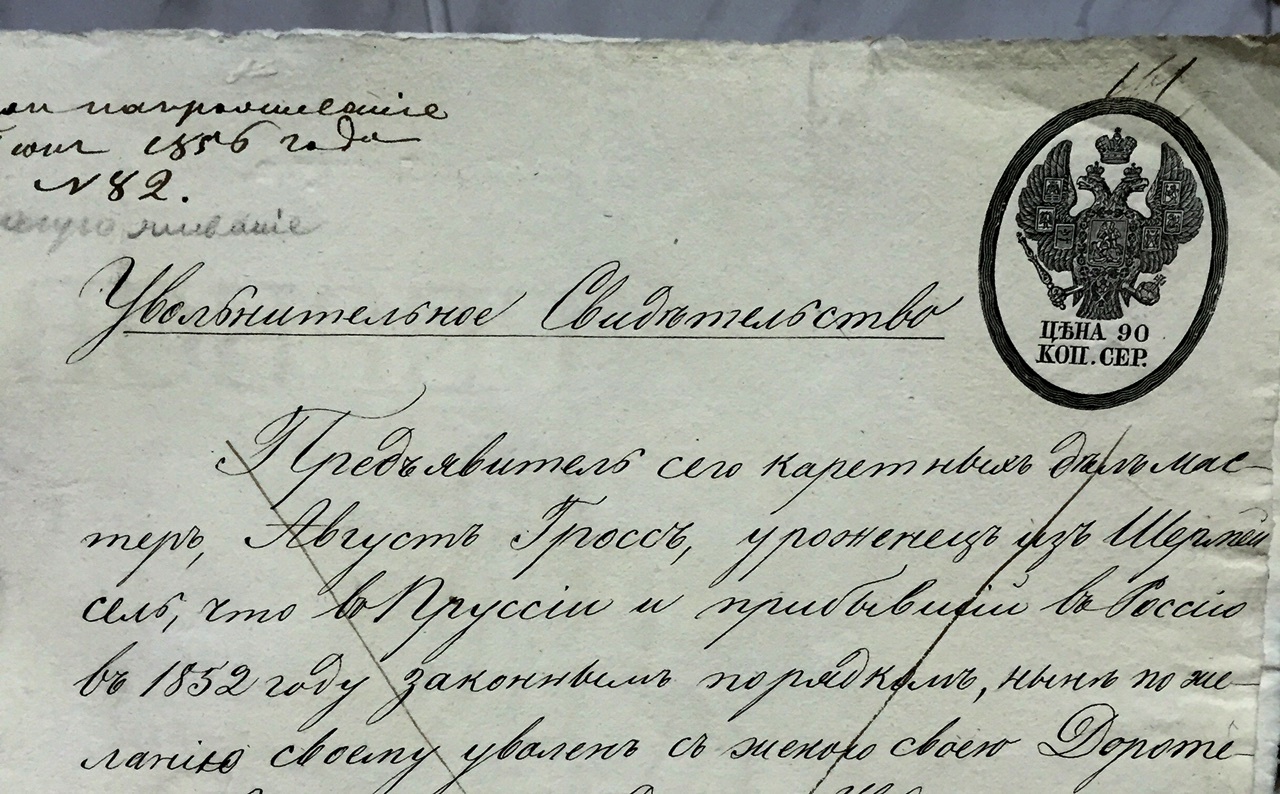 1856 года
N 82.
Увольнительное Свидѣтельство
ЦѢНА 90
КОП. СЕР.
Предъявитель сего каретныхъ дѣлъ мас-
теръ, Августъ Гроссъ, уроженецъ изъ
сель, что въ Пруссіи и прибывшій въ Россію
въ 1852 году законнымъ порядкомъ, нынѣ по же-
ланію своему уволенъ съ женою своею Дороте-